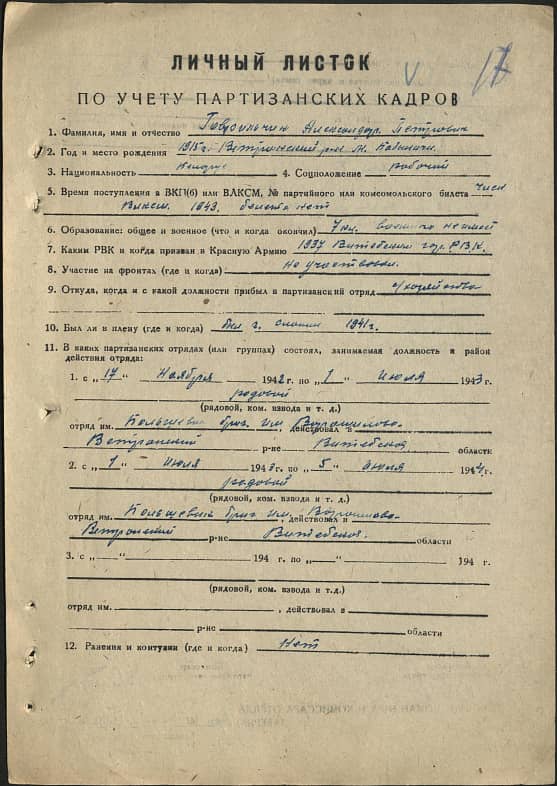 17
ЛИЧНЫЙ ЛИСТОК
ПО УЧЕТУ ПАРТИЗАНСКИХ КАДРОВ
1. Фамилия, имя и отчество Гаврильчик Александр Петрович
2. Год и место рождения 1915 г. Ветринский р-н
3. Национальность белорус 4. Соцположение рабочий
5. Время поступления в ВКП(б) или ВЛКСМ, № партийного или комсомольского билета член
Влксм. 1943. билета нет
6. Образование: общее и военное (что и когда окончил) 7 кл. военного не имеет
7. Каким РВК и когда призван в Красную Армию 1937 Витебским гор. РВК.
8. Участие на фронтах (где и когда) не участвовал.
9. Откуда, когда и с какой должности прибыл в партизанский отряд с/хозяйства
10. Был ли в плену (где и когда) был г. Слоним 1941 г.
11. В каких партизанских отрядах (или группах) состоял, занимаемая должность и район
действия отряда:
1. с „17" Ноября 1942 г. по „1" июля 1943 г.
рядовой
(рядовой, ком. взвода и т. д.)
отряд им. бриг им Ворошилова, действовал в
Ветринский р-не Витебской области
2. с „1" июля 1943 г. по „5" июля 1944 г.
рядовой
(рядовой, ком. взвода и т. д.)
отряд им. бриг им. Ворошилова, действовал в
Ветринский р-не Витебской. области
3. с „ " 194 г. по „ " 194 г.
(рядовой, ком. взвода и т.д.)
отряд им. , действовал в
р-не области
12. Ранения и контузии (где и когда) Нет